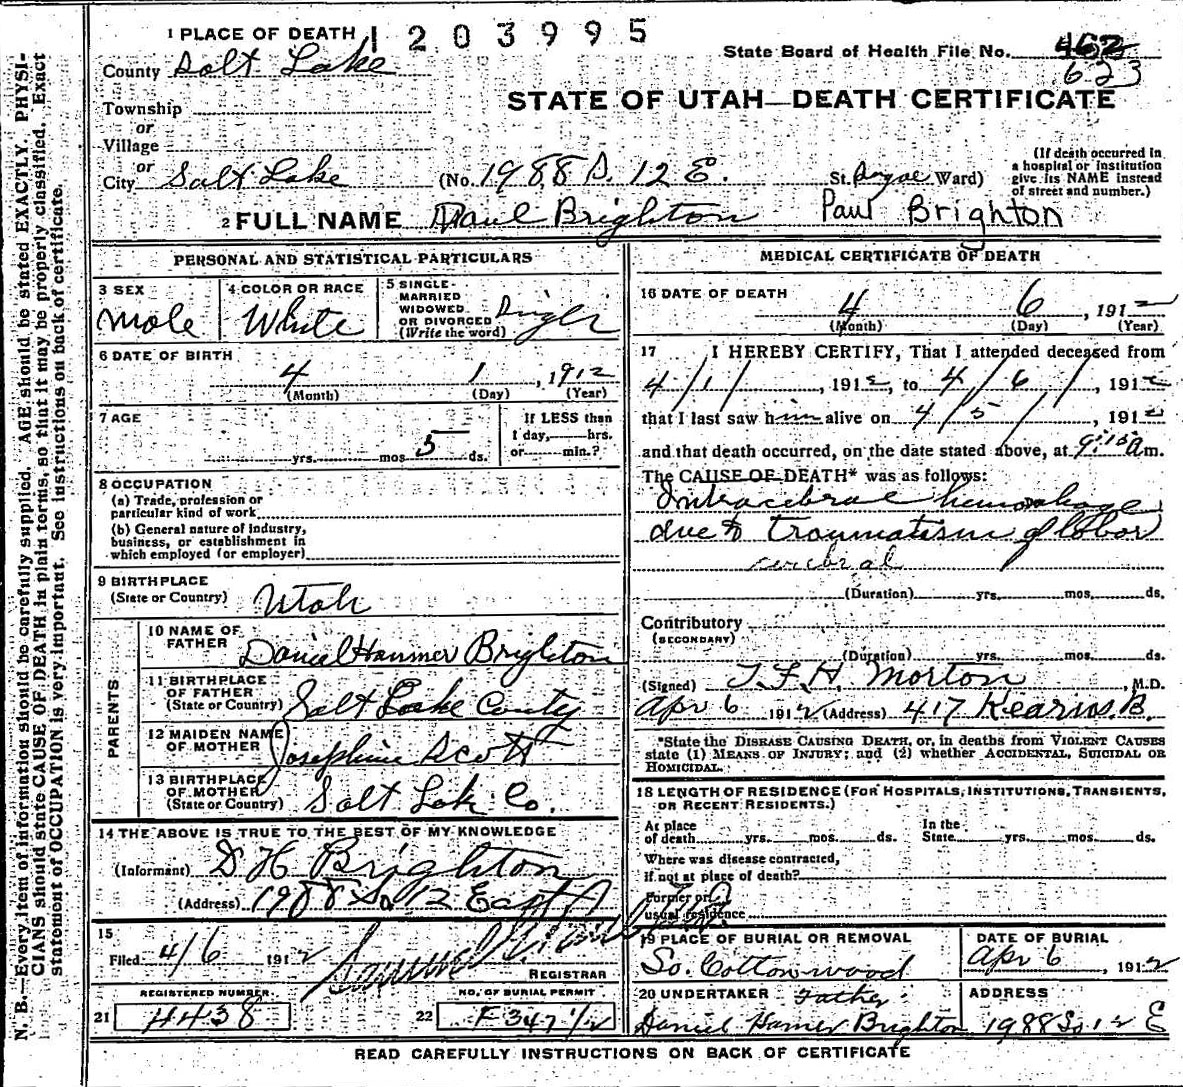 1 PLACE OF DEATH
1203995
State Board of Health File No. 462
623
County Salt Lake
STATE OF UTAH—DEATH CERTIFICATE
Township
or
Village
or
City Salt Lake (No. 1988 S. 12 E. St. Ward)
(If death occurred in a hospital or institution give its NAME instead of street and number.)
2 FULL NAME Paul Brighton Paul Brighton
PERSONAL AND STATISTICAL PARTICULARS
3 SEX
Male
4 COLOR OR RACE
White
5 SINGLE-
MARRIED
WIDOWED
OR DIVORCED
(Write the word)
Single
6 DATE OF BIRTH
4 1 , 1912
(Month) (Day) (Year)
7 AGE
yrs. mos 5 ds.
If LESS than
1 day, hrs.
or min.?
8 OCCUPATION
(a) Trade, profession or
particular kind of work
(b) General nature of industry,
business, or establishment in
which employed (or employer)
9 BIRTHPLACE
(State or Country) Utah
PARENTS
10 NAME OF
FATHER Daniel Hanmer Brighton
11 BIRTHPLACE
OF FATHER
(State or Country) Salt Lake County
12 MAIDEN NAME
OF MOTHER Josephine Scott
13 BIRTHPLACE
OF MOTHER
(State or Country) Salt Lak Co.
14 THE ABOVE IS TRUE TO THE BEST OF MY KNOWLEDGE
(Informant) D H Brighton
(Address) 1988 So 12 East
15
Filed 4/6 1912
REGISTRAR
REGISTERED NUMBER
21 4438
NO. OF BURIAL PERMIT
22 F 347 1/2
MEDICAL CERTIFICATE OF DEATH
16 DATE OF DEATH
4 6 , 1912
(Month) (Day) (Year)
17 I HEREBY CERTIFY, That I attended deceased from
4/1/ , 1912, to 4/6/ , 1912
that I last saw him alive on 4/5/ , 1912
and that death occurred, on the date stated above, at 9:15 am.
The CAUSE OF DEATH* was as follows:
Intracebrae hemorhage
due to traumatism of labor
cerebral
(Duration) yrs. mos. ds.
Contributory
(SECONDARY)
(Duration) yrs. mos. ds.
(Signed) T. F. H. Morton , M.D.
Apr 6 1912 (Address) 417 Kearns. B.
*State the DISEASE CAUSING DEATH, or, in deaths from VIOLENT CAUSES
state (1) MEANS OF INJURY; and (2) whether ACCIDENTAL, SUICIDAL OR
HOMICIDAL.
18 LENGTH OF RESIDENCE (FOR HOSPITALS, INSTITUTIONS, TRANSIENTS,
OR RECENT RESIDENTS.)
At place
of death yrs. mos. ds.
In the
State yrs. mos. ds.
Where was disease contracted,
if not at place of death?
Former or
usual residence
19 PLACE OF BURIAL OR REMOVAL
So. Cottonwood
DATE OF BURIAL
Apr 6 , 1912
20 UNDERTAKER Father
Daniel Hamer Brighton
ADDRESS
1988 So 12 E
READ CAREFULLY INSTRUCTIONS ON BACK OF CERTIFICATE
N. B.—Every item of information should be carefully supplied. AGE should be stated EXACTLY. PHYSI-
CIANS should state CAUSE OF DEATH in plain terms, so that it may be properly classified. Exact
statement of OCCUPATION is very important. See instructions on back of certificate.